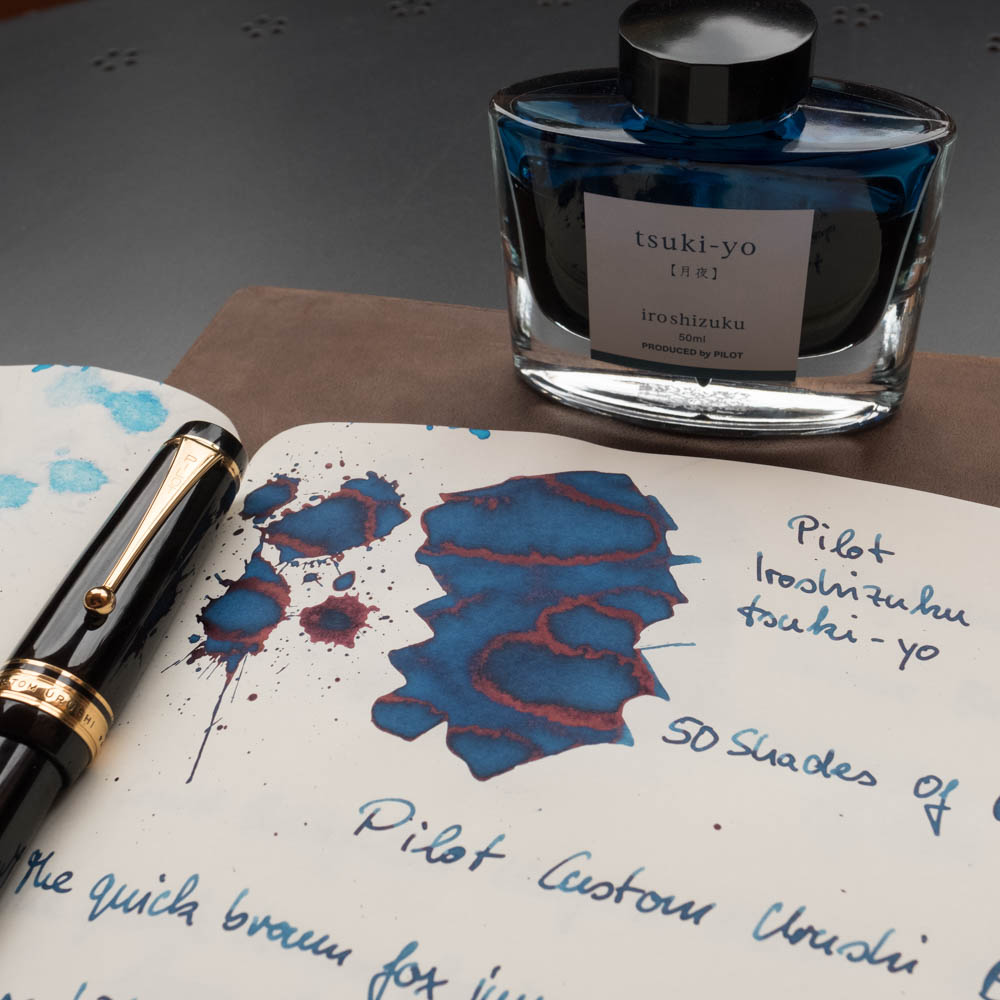 tsuki-yo
【月夜】
iroshizuku
50ml
PRODUCED by PILOT
Pilot
Iroshizuku
tsuki-yo
50 Shades of
Pilot Custom Urushi
the quick brown fox
PILOT
CUSTOM URUSHI